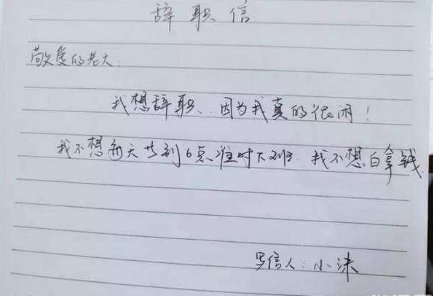 辞职信
敬爱的老大:
我想辞职,因为我真的很闲!
我不想每天林到6点准时下班,我不想白拿钱
写信人:小沫